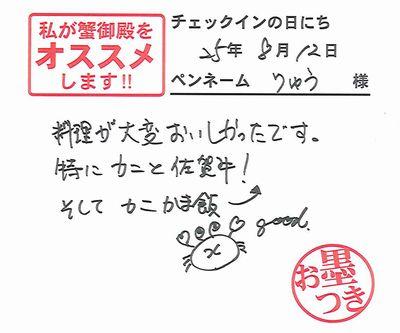 私が蟹御殿を
オススメ
します!!
チェックインの日にち
25年 8月 12日
ペンネーム りゅう 様
料理が大変おいしかったです。
特にカニと佐賀牛!
そして カニかま飯
good.
お墨つき